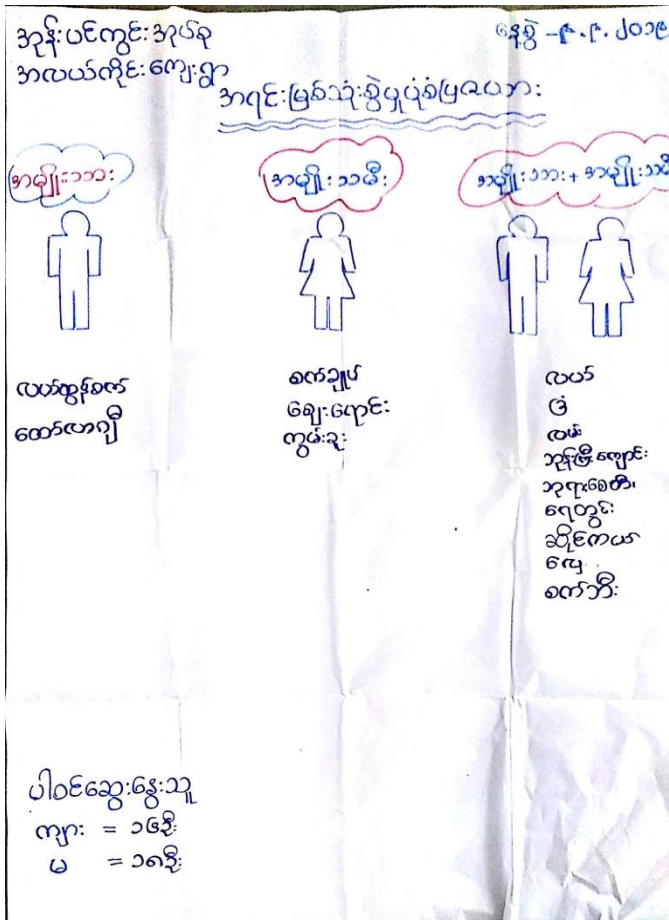 အုန်းပင်ကွင်းအုပ်စု
အလယ်ကိုင်းကျေးရွာ
နေ့စွဲ - ၉.၉.၂၀၁၉
အရင်းမြစ်သုံးစွဲမှုပုံစံပြဇယား
အမျိုးသား
အမျိုးသမီး
အမျိုးသား + အမျိုးသမီး
လယ်ထွန်စက်
ထော်လာဂျီ
စက်ချုပ်
ဈေးရောင်း
ကွမ်းခူး
လယ်
ခြံ
လမ်း
ဘုန်းကြီးကျောင်း
ဘုရားစေတီ
ရေတွင်း
ဆိုင်ကယ်
လှေ
စက်ဘီး
ပါဝင်ဆွေးနွေးသူ
ကျား = ၁၆ဦး
မ = ၁၈ဦး